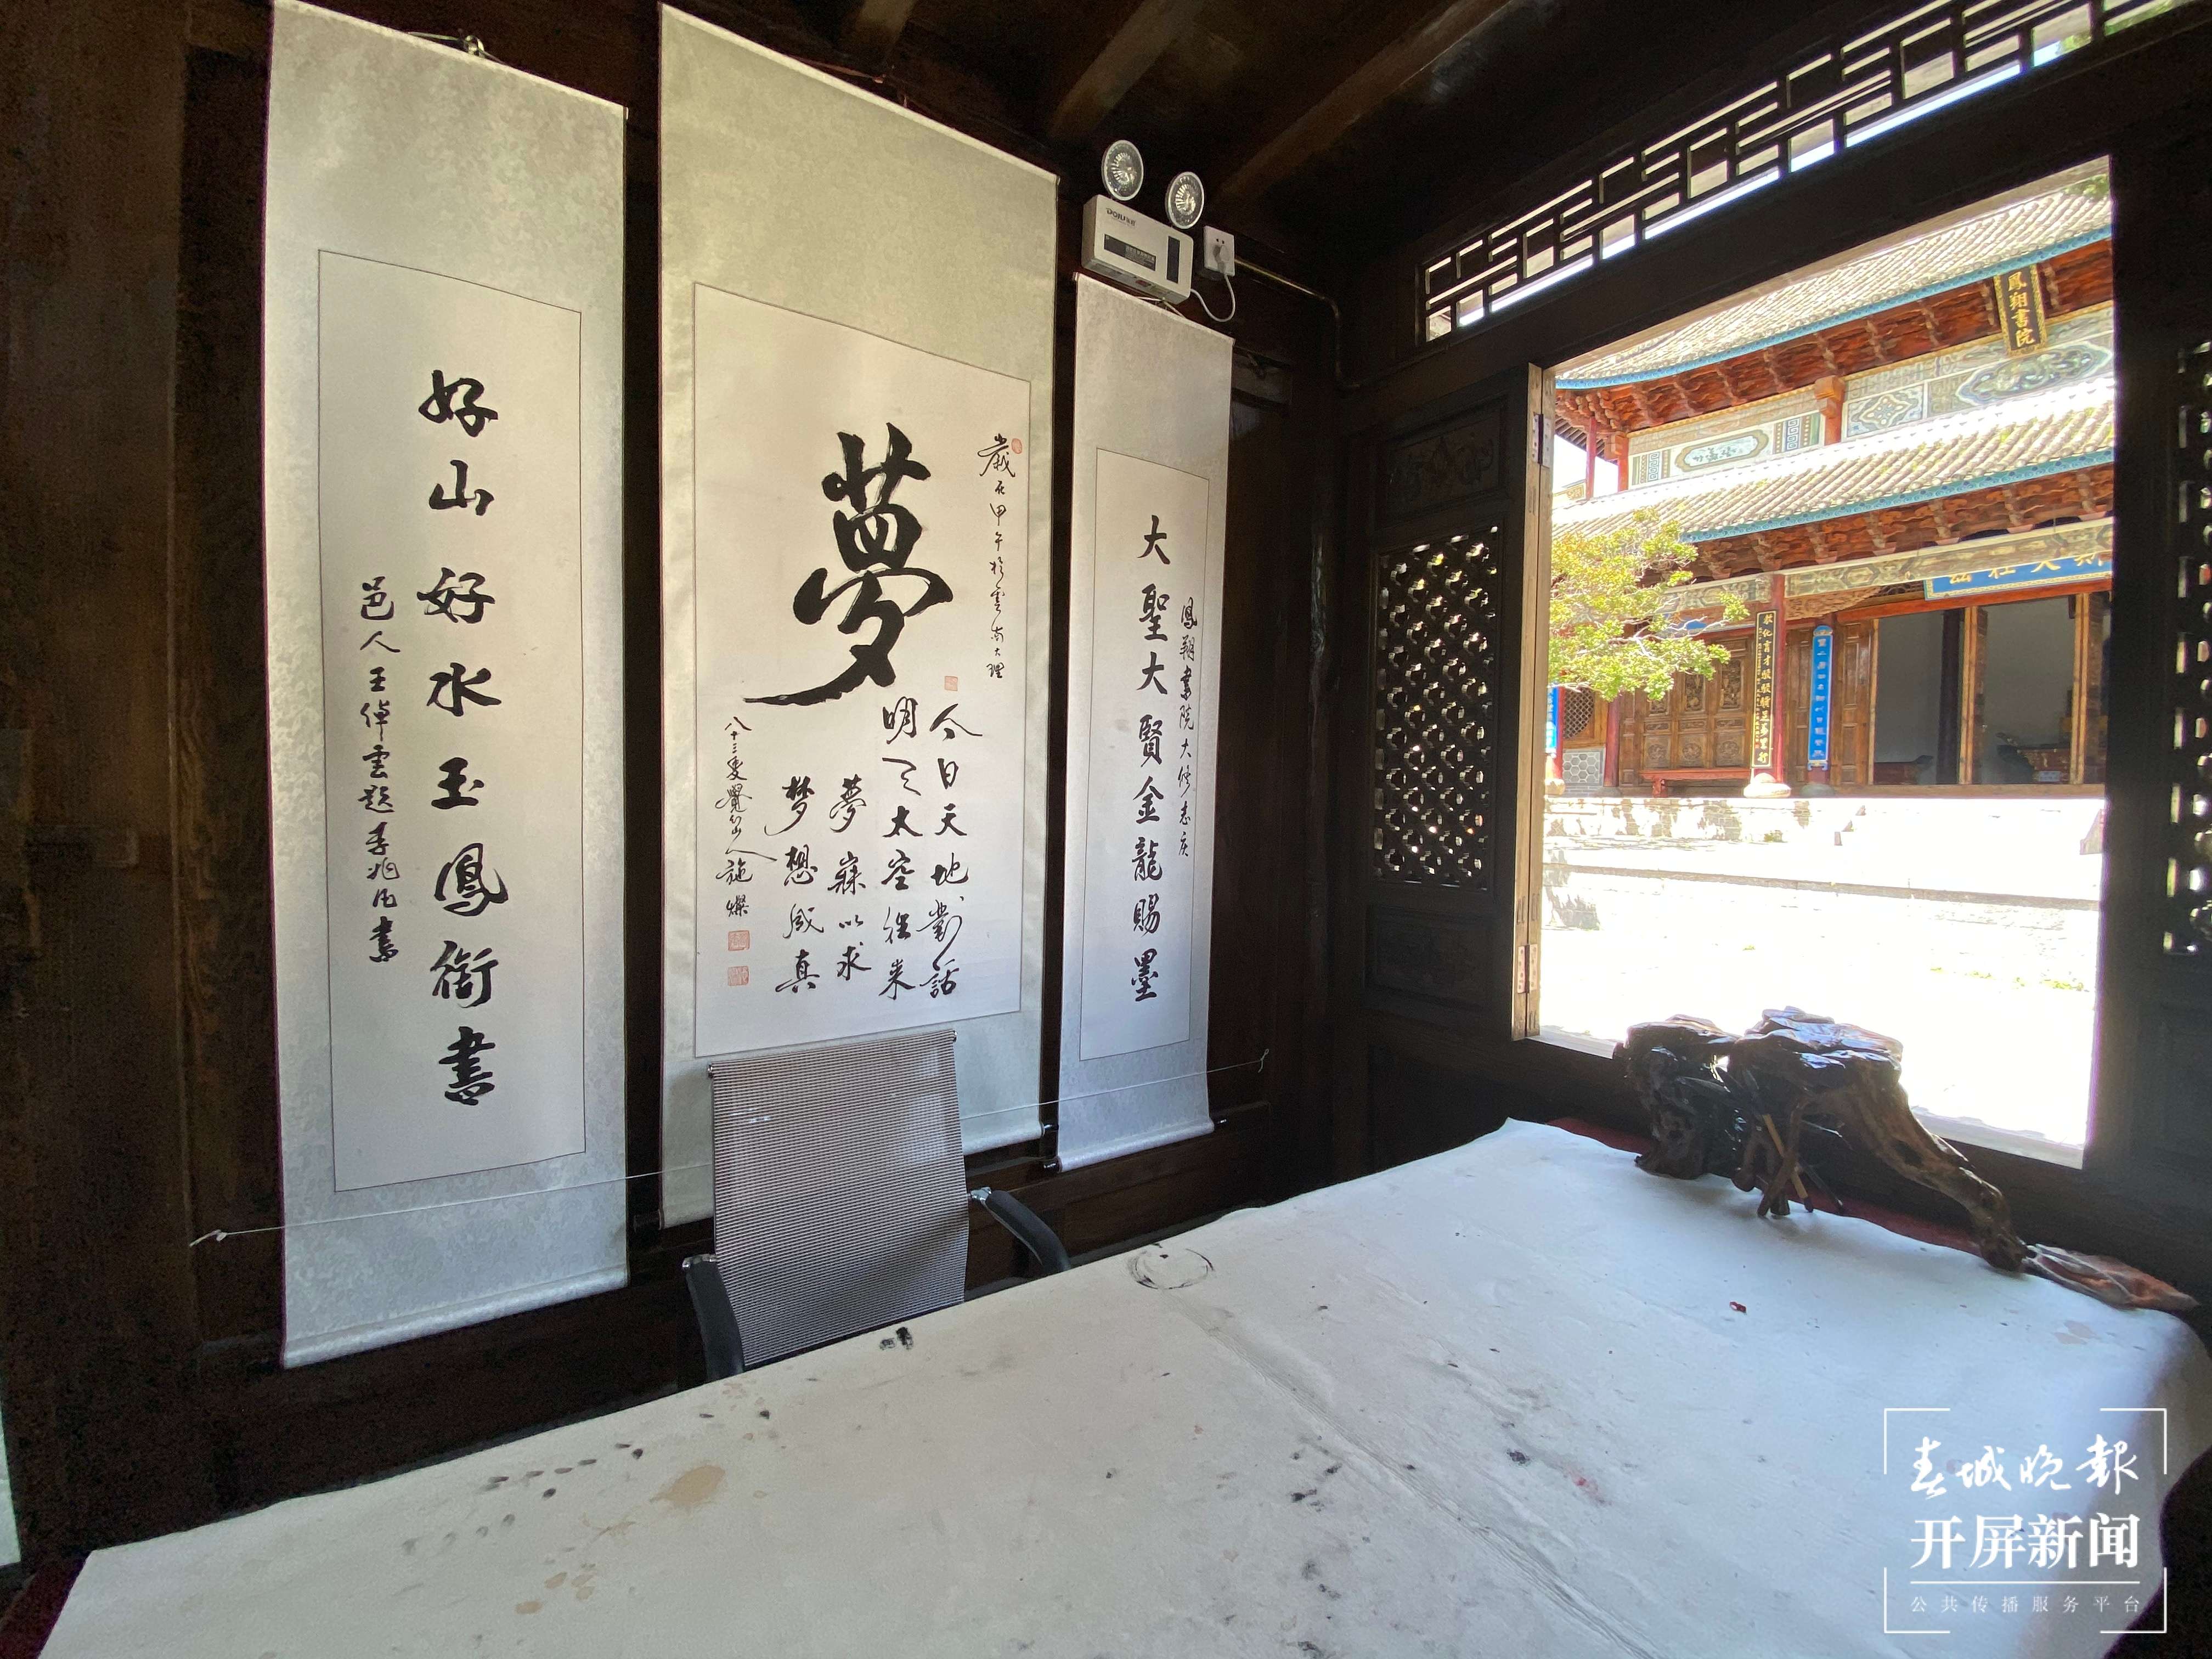 大聖大賢金龍賜墨
鳳翔書院大修志慶
夢
歲在甲午於雲南大理
今日天地對話
明天太空往来
夢寐以求
梦想成真
八十三叟覺山人施燦
好山好水玉鳳銜書
邑人王倬雲題李兆凡書
鳳翔書院
春城晚報
开屏新闻
公共传播服务平台